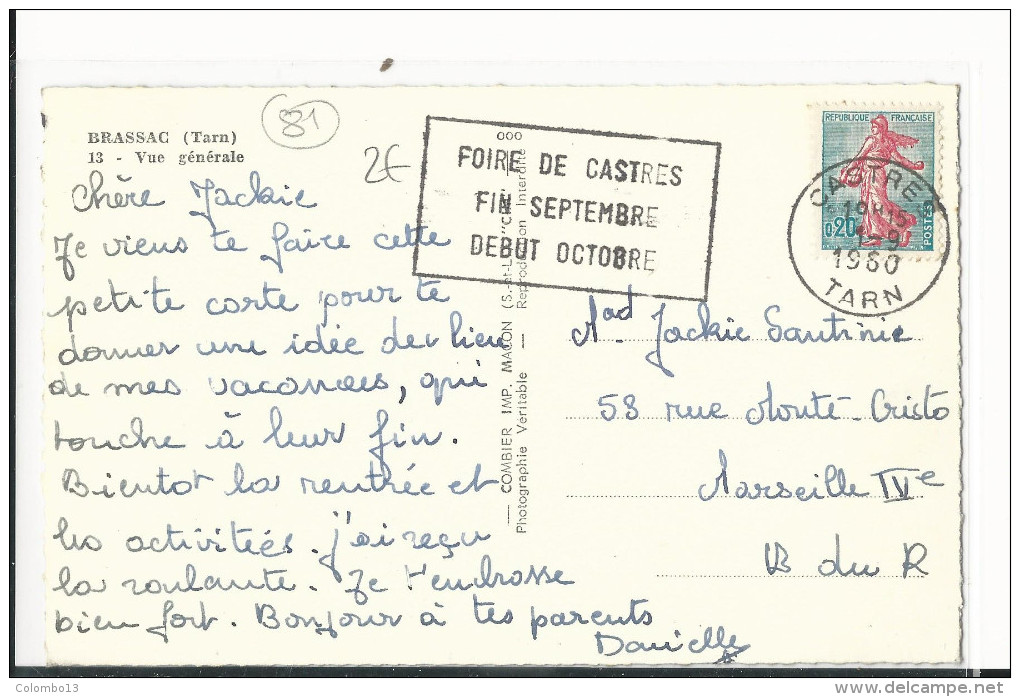 BRASSAC (Tarn)
13 - Vue générale
81
2€
FOIRE DE CASTRES
FIN SEPTEMBRE
DEBUT OCTOBRE
REPUBLIQUE FRANÇAISE
0,20
POSTES
CASTRES
1-9
1960
TARN
Chère Jackie
Je viens te faire cette
petite carte pour te
donner une idée des lieu
de mes vacances, qui
touche à leur fin.
Bientot la rentrée et
les activitées. J'ai reçu
la roulante. Je t'embrasse
bien fort. Bonjour à tes parents
Danielle
COMBIER IMP. MACON (S.-et-L.)
Photographie Véritable — Reproduction Interdite
Jackie Santinie
58 rue Monté-Cristo
Marseille IVe
B du R
Colombo13
www.delcampe.net